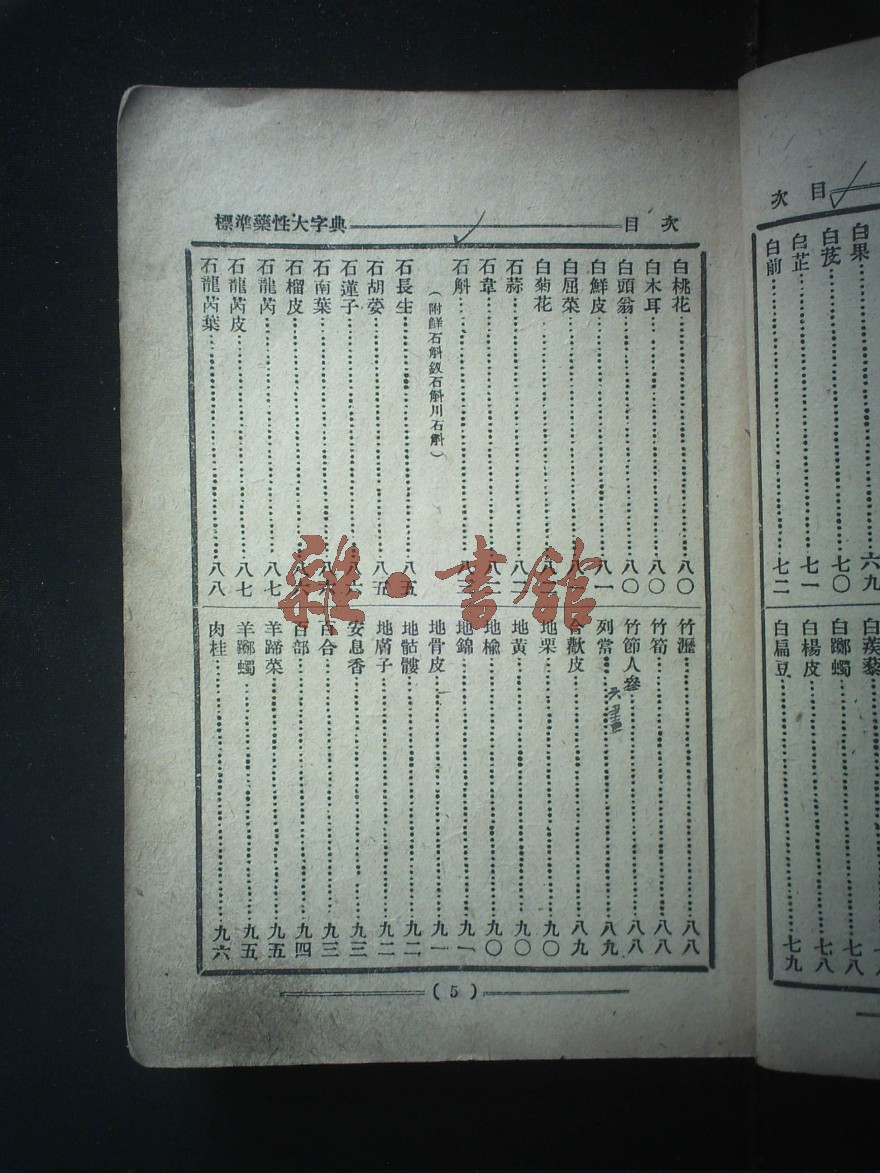 標準藥性大字典 目次
白桃花 八〇
白木耳 八〇
白頭翁 八〇
白鮮皮 八一
白屈菜
白菊花
石蒜
石韋
石斛
（附鮮石斛釵石斛川石斛）
石長生 八五
石胡荽 八五
石蓮子 八六
石南葉
石榴皮
石龍芮 八七
石龍芮皮 八七
石龍芮葉 八八
竹瀝 八八
竹筍 八八
竹節人參 八八
列當 八九
合歡皮 八九
地栗 九〇
地黃 九〇
地榆 九〇
地錦 九一
地骨皮 九一
地骷髏 九二
地膚子 九二
安息香 九三
百合 九三
百部 九四
羊蹄菜 九五
羊躑躅 九五
肉桂 九六
( 5 )
雜·書館
目次
白果 六九
白芨 七〇
白芷 七一
白前 七二
白蒺藜
白躑躅 七八
白楊皮 七八
白扁豆 七九